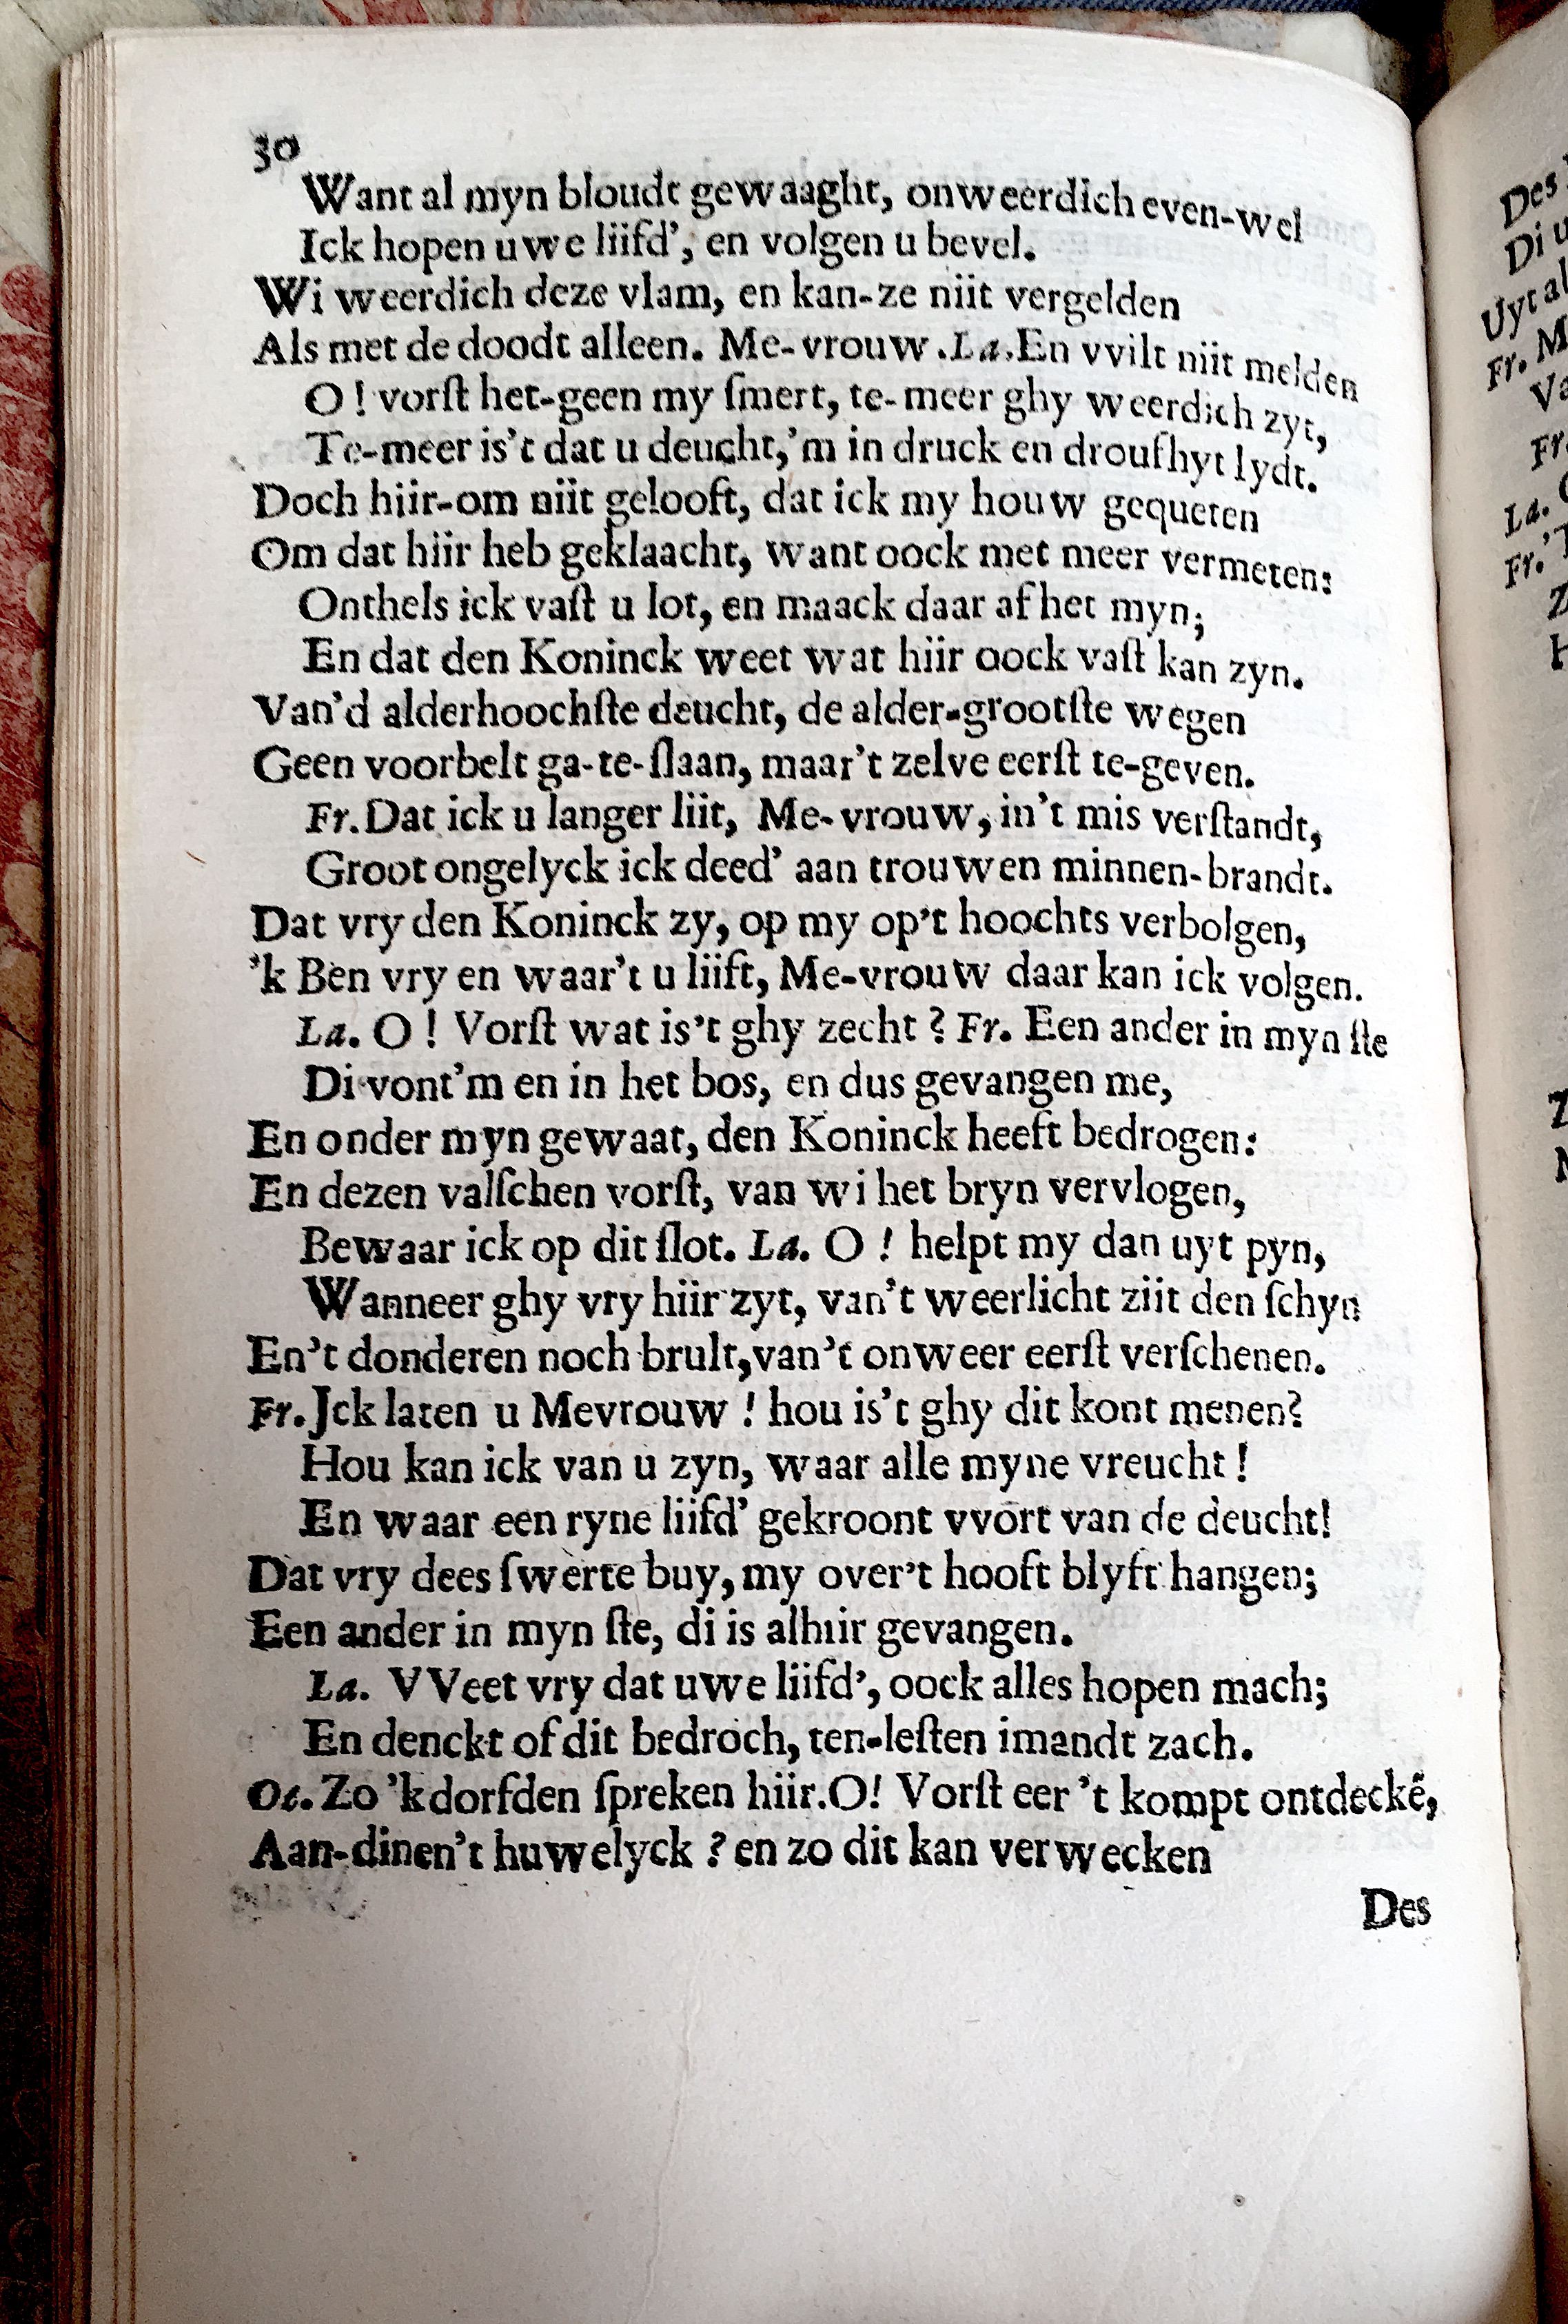 30
Want al myn bloudt gewaaght, onweerdich even-wel
Ick hopen uwe liifd', en volgen u bevel.
Wi weerdich deze vlam, en kan-ze niit vergelden
Als met de doodt alleen. Me-vrouw. La. En vvilt niit melden
O! vorſt het-geen my ſmert, te-meer ghy weerdich zyt,
Te-meer is't dat u deucht,'m in druck en droufhyt lydt.
Doch hiir-om niit gelooft, dat ick my houw gequeten
Om dat hiir heb geklaacht, want oock met meer vermeten:
Onthels ick vaſt u lot, en maack daar af het myn;
En dat den Koninck weet wat hiir oock vaſt kan zyn.
Van'd alderhoochſte deucht, de alder-grootſte wegen
Geen voorbelt ga-te-ſlaan, maar't zelve eerſt te-geven.
Fr. Dat ick u langer liit, Me-vrouw, in't mis verſtandt,
Groot ongelyck ick deed' aan trouwen minnen-brandt.
Dat vry den Koninck zy, op my op't hoochts verbolgen,
'k Ben vry en waar't u liift, Me-vrouw daar kan ick volgen.
La. O! Vorſt wat is't ghy zecht? Fr. Een ander in myn ſte
Di vont'm en in het bos, en dus gevangen me,
En onder myn gewaat, den Koninck heeft bedrogen:
En dezen valſchen vorſt, van wi het bryn vervlogen,
Bewaar ick op dit ſlot. La. O! helpt my dan uyt pyn,
Wanneer ghy vry hiir zyt, van't weerlicht ziit den ſchyn
En't donderen noch brult, van't onweer eerſt verſchenen.
Fr. Jck laten u Mevrouw! hou is't ghy dit kont menen?
Hou kan ick van u zyn, waar alle myne vreucht!
En waar een ryne liifd' gekroont vvort van de deucht!
Dat vry dees ſwerte buy, my over't hooft blyft hangen;
Een ander in myn ſte, di is alhiir gevangen.
La. VVeet vry dat uwe liifd', oock alles hopen mach;
En denckt of dit bedroch, ten-leſten imandt zach.
Ot. Zo 'k dorfden ſpreken hiir. O! Vorſt eer 't kompt ontdeckẽ,
Aan-dinen't huwelyck? en zo dit kan verwecken
Des